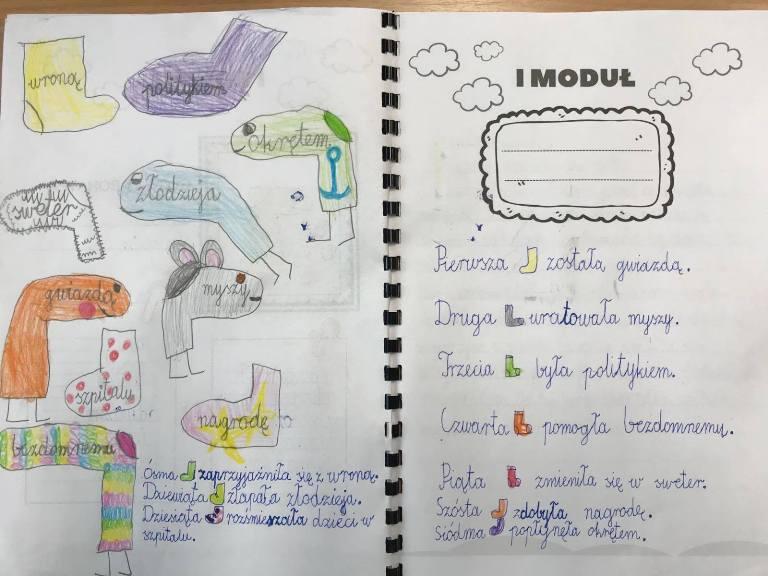 wroną
politykiem
okrętem
złodzieja
sweter
gwiazdą
myszy
szpitalu
nagrodę
bezdomnemu
Ósma zaprzyjaźniła się z wroną.
Dziewiąta złapała złodzieja.
Dziesiąta rozśmieszała dzieci w
szpitalu.
I MODUŁ
Pierwsza została gwiazdą.
Druga uratowała myszy.
Trzecia była politykiem.
Czwarta pomogła bezdomnemu.
Piąta zmieniła się w sweter.
Szósta zdobyła nagrodę.
Siódma popłynęła okrętem.